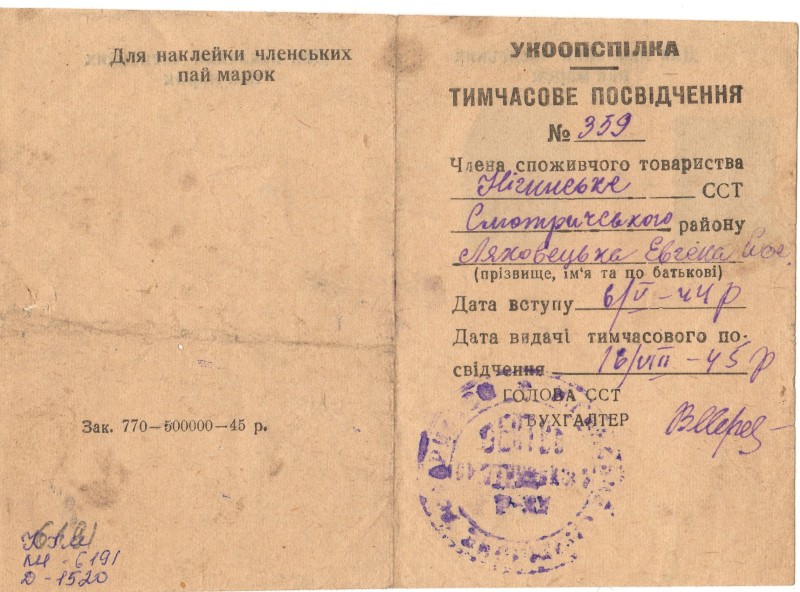 Для наклейки членських
пай марок
Зак. 770—500000—45 р.
КПМ
КН - 6191
Д - 1520
УКООПСПІЛКА
ТИМЧАСОВЕ ПОСВІДЧЕННЯ
№ 359
Члена споживчого товариства
Нігинське ССТ
Смотричського району
Ляховецька Евгена
(прізвище, ім'я та по батькові)
Дата вступу 6/V-44 р
Дата видачі тимчасового по-
свідчення 16/VIII-45 р
ГОЛОВА ССТ
БУХГАЛТЕР